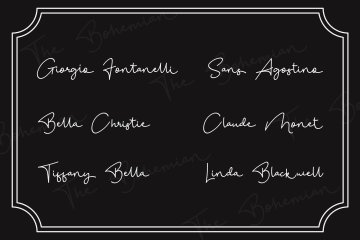 Giorgio Fontanelli
Sans Agostino
Bella Christie
Claude Monet
Tiffany Bella
Linda Blackwell
The Bohemian
The Bohemian
The Bohemian
The Bohemian
The Bohemian